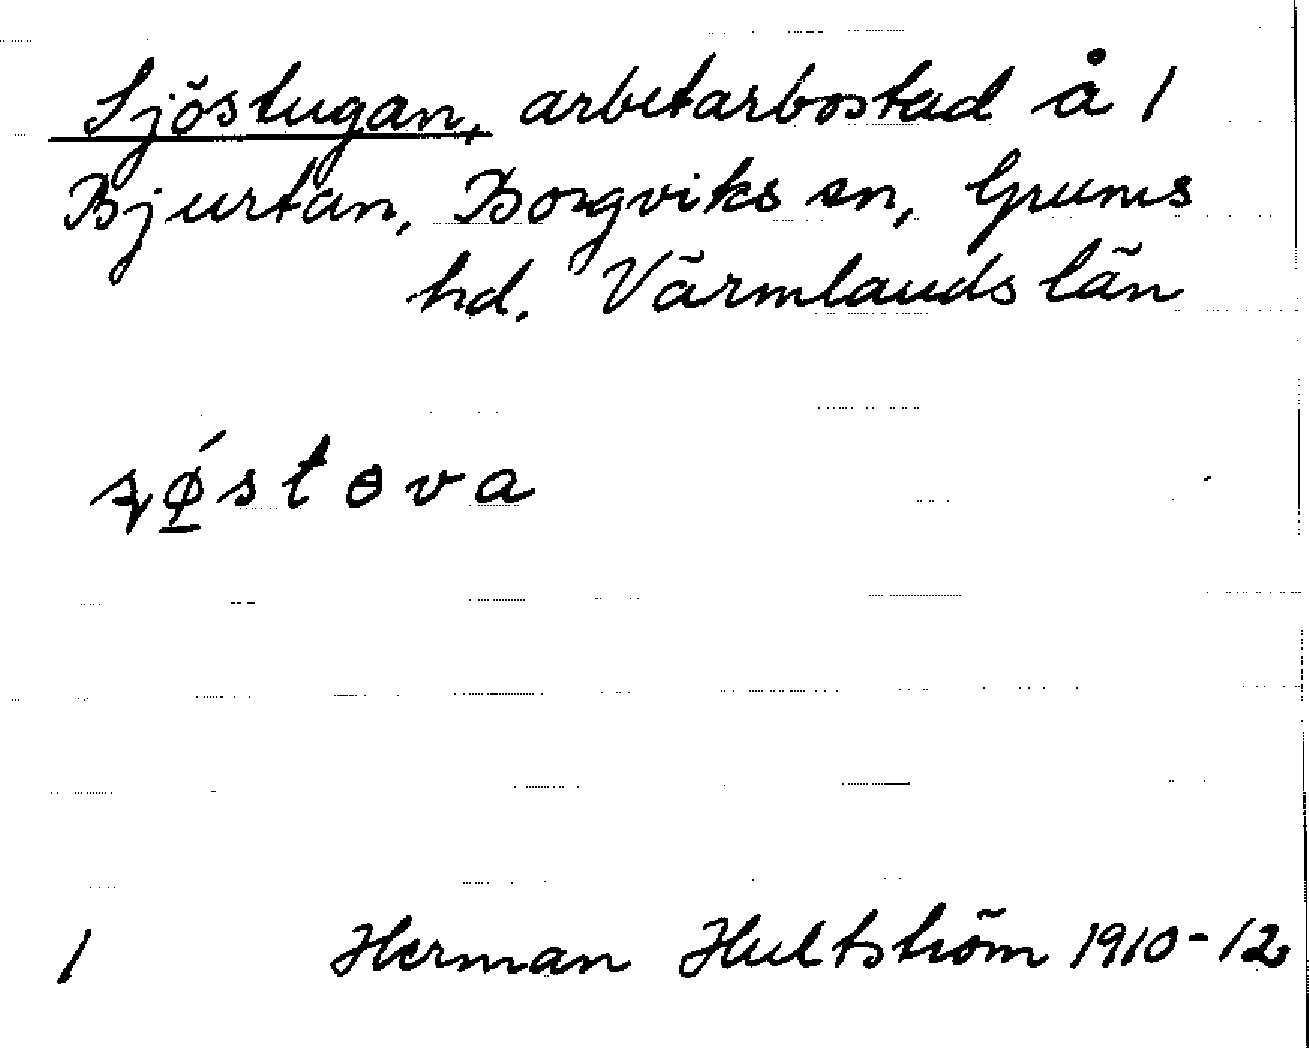 Sjöstugan, arbetarbostad å 1
Bjurtan, Borgviks sn, Grums
hd. Värmlands län
ʂǿ̱stɵva
1 Herman Hultström 1910-12